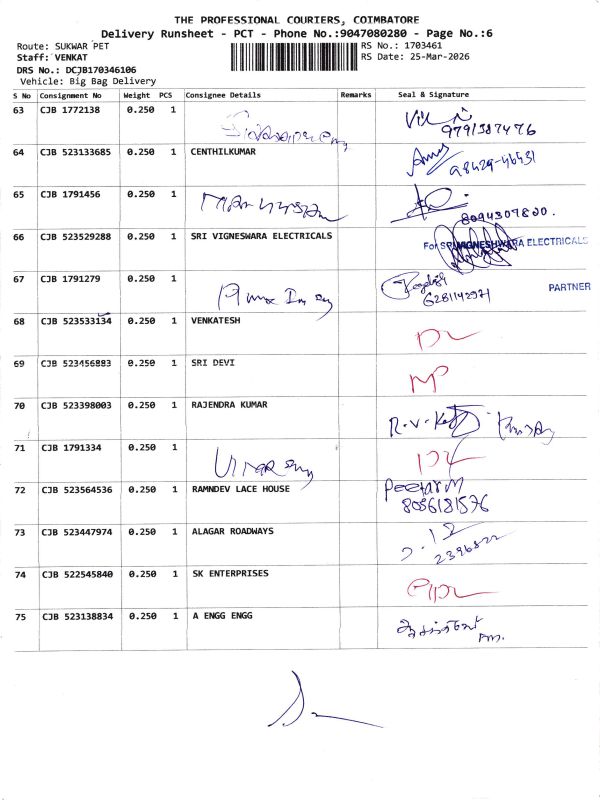 THE PROFESSIONAL COURIERS, COIMBATORE
Delivery Runsheet - PCT - Phone No.:9047080280 - Page No.:6
Route: SUKWAR PET RS No.: 1703461
Staff: VENKAT RS Date: 25-Mar-2026
DRS No.: DCJB170346106
Vehicle: Big Bag Delivery
S No Consignment No Weight PCS Consignee Details Remarks Seal & Signature
63 CJB 1772138 0.250 1
9791387476
64 CJB 523133685 0.250 1 CENTHILKUMAR
98429-46431
65 CJB 1791456 0.250 1
8094307820.
66 CJB 523529288 0.250 1 SRI VIGNESWARA ELECTRICALS
For SRI VIGNESHWARA ELECTRICALS
67 CJB 1791279 0.250 1
6281142971
PARTNER
68 CJB 523533134 0.250 1 VENKATESH
69 CJB 523456883 0.250 1 SRI DEVI
70 CJB 523398003 0.250 1 RAJENDRA KUMAR
71 CJB 1791334 0.250 1
72 CJB 523564536 0.250 1 RAMNDEV LACE HOUSE
8056181576
73 CJB 523447974 0.250 1 ALAGAR ROADWAYS
74 CJB 522545840 0.250 1 SK ENTERPRISES
75 CJB 523138834 0.250 1 A ENGG ENGG